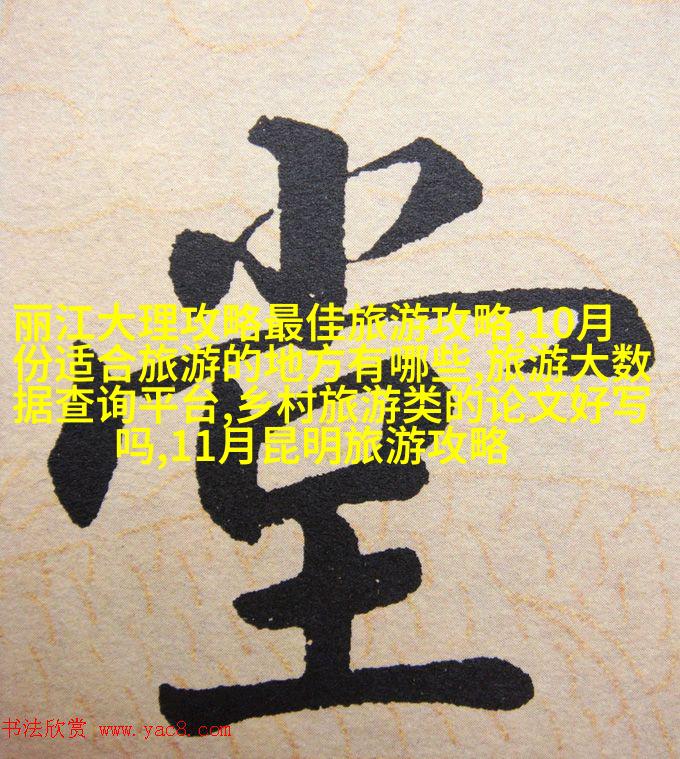 堂
丽江大理攻略最佳旅游攻略,10月
份适合旅游的地方有哪些,旅游大数
据查询平台,乡村旅游类的论文好写
吗,11月昆明旅游攻略
书法欣赏 www.yac8.com